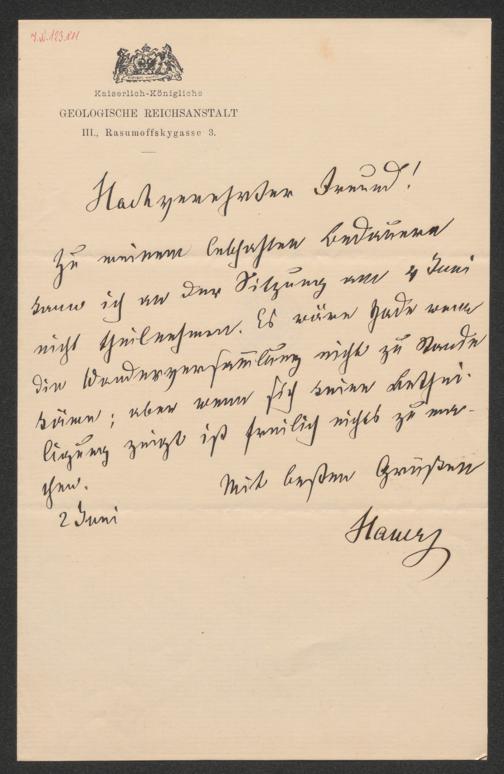 Kaiserlich-Königliche
GEOLOGISCHE REICHSANSTALT
III., Rasumoffskygasse 3.
Hochverehrter Freund!
Zu meinem lebhaften Bedauern
kann ich an der Sitzung am 4 Juni
nicht theilnehmen. Es wäre schade wenn
die Wanderversammlung nicht zu Stande
käme; aber wenn sich keine Bethei-
ligung zeigt ist freilich nichts zu ma-
chen.
Mit besten Grüßen
2 Juni
Hauer